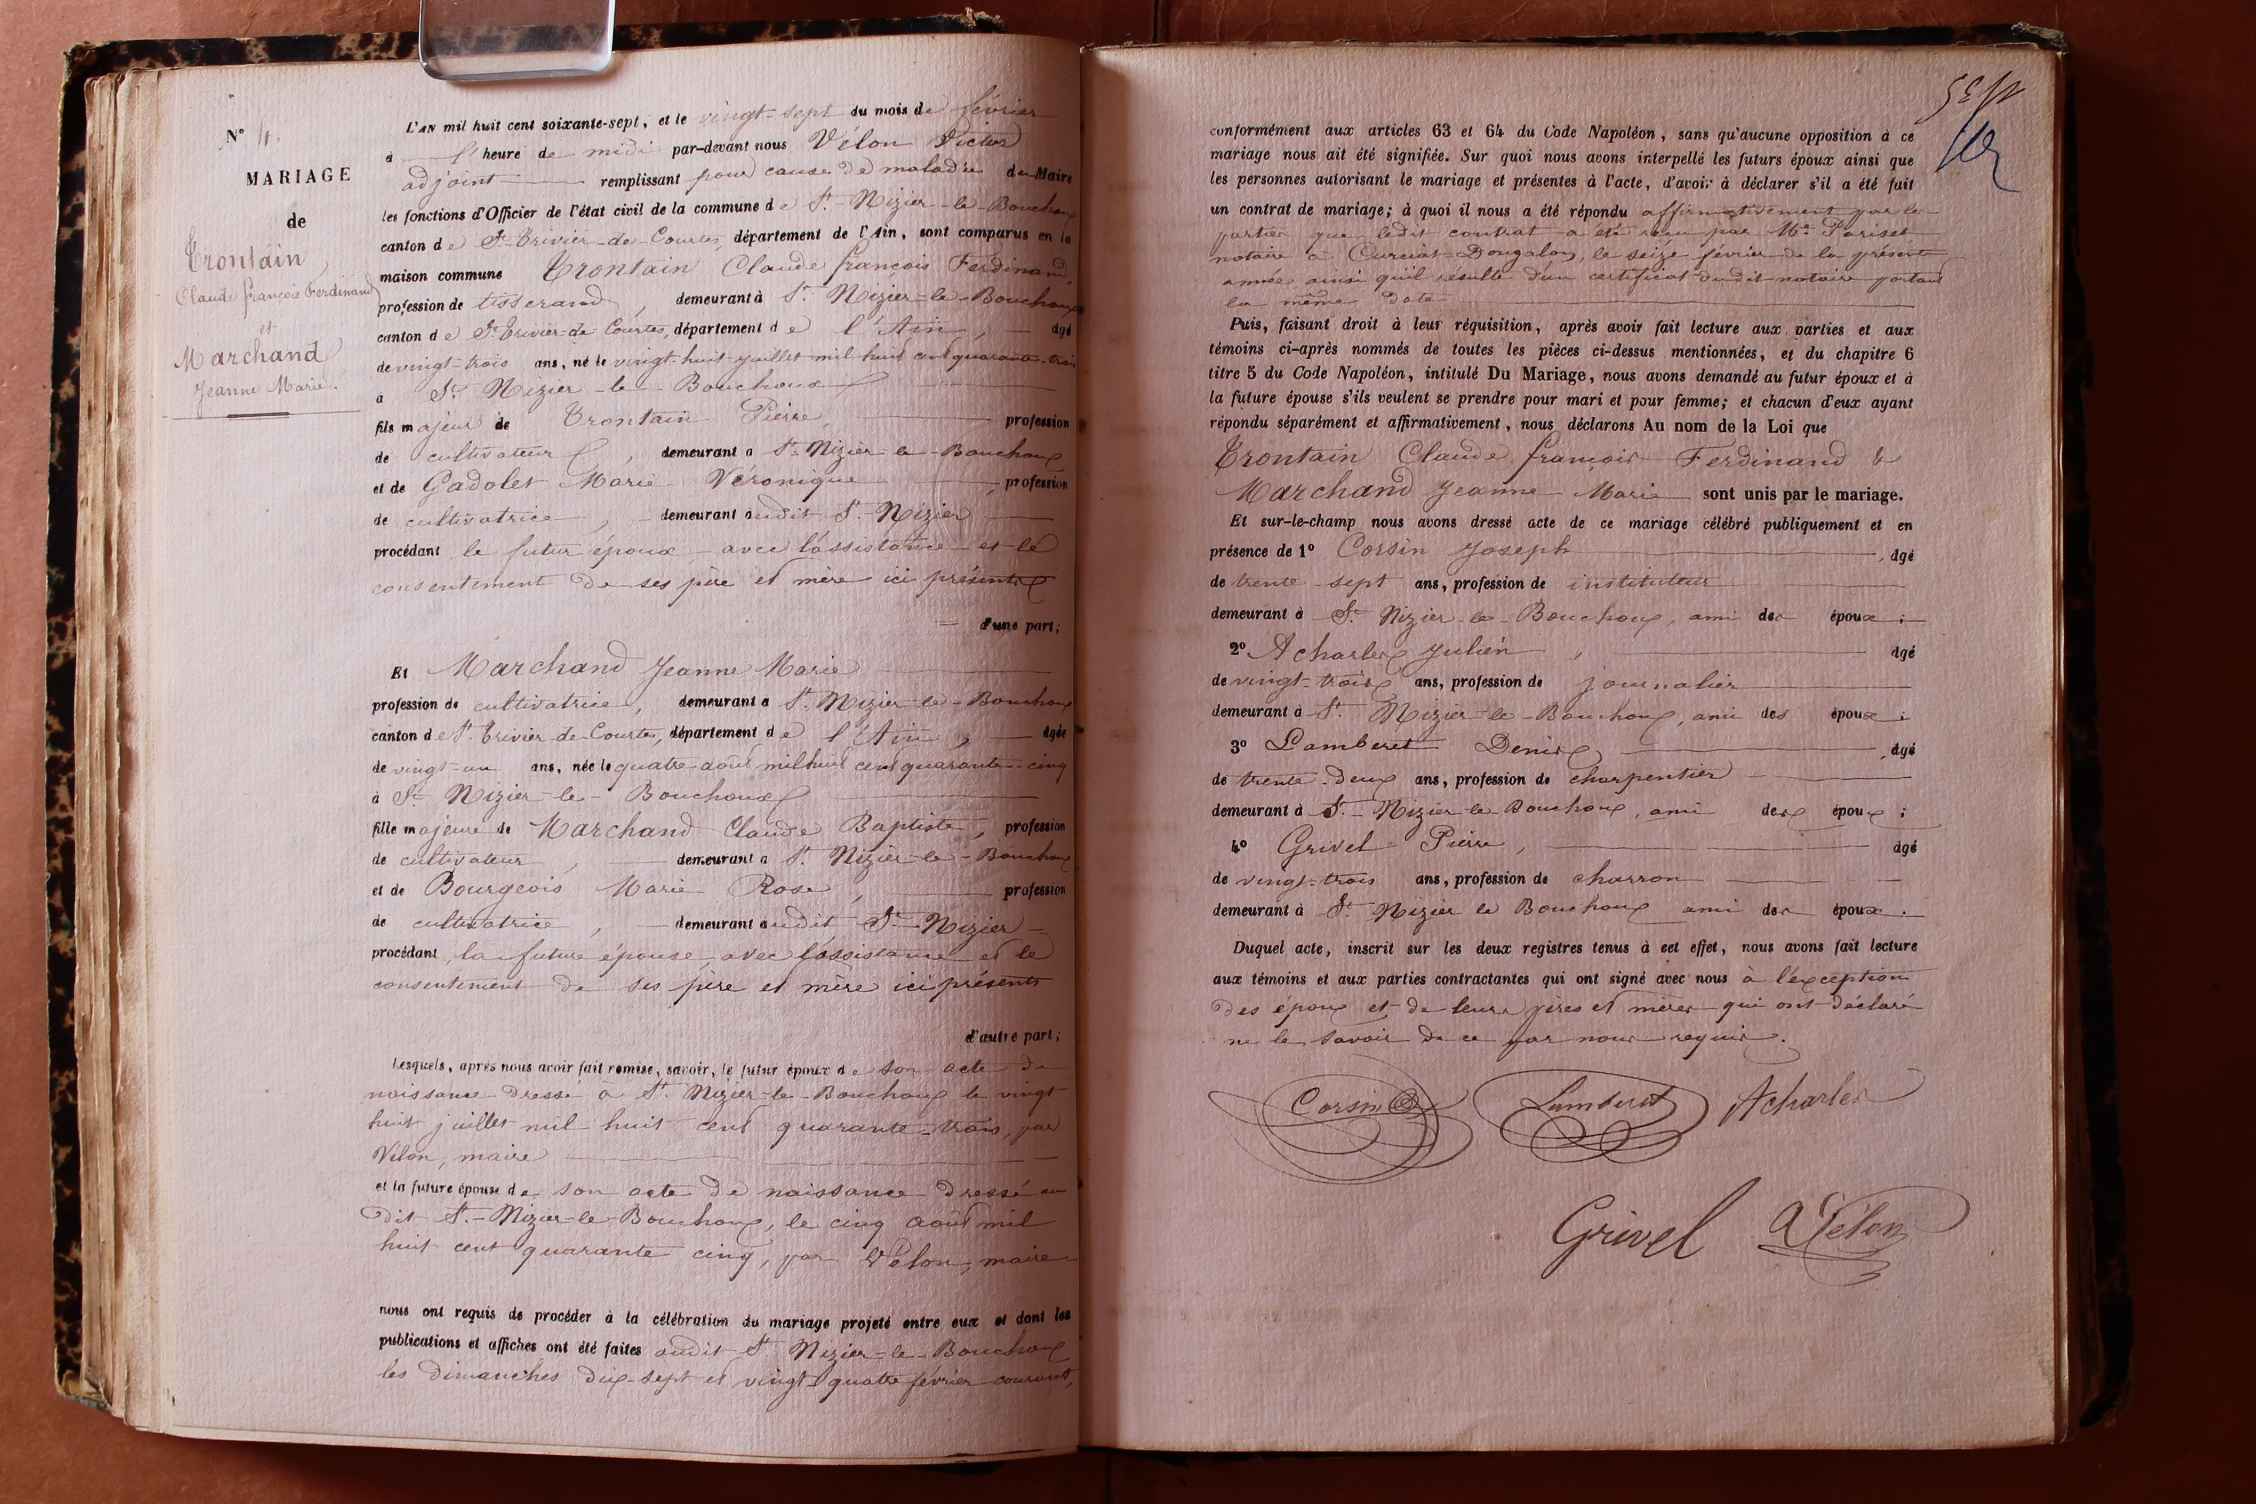 N° 4.
MARIAGE
de
Trontain
Claude françois Ferdinand
et
Marchand
Jeanne Marie.
L'AN mil huit cent soixante-sept, et le vingt-sept du mois de février
à l'heure de midi par-devant nous Vélon Victor
adjoint remplissant pour cause de maladie du Maire
les fonctions d'Officier de l'état civil de la commune de St-Nizier-le-Bouchoux
canton de St-Trivier-de-Courtes, département de l'Ain, sont comparus en la
maison commune Trontain Claude françois Ferdinand,
profession de tisserand, demeurant à St Nizier-le-Bouchoux
canton de St-Trivier-de-Courtes, département de l'Ain, âgé
de vingt-trois ans, né le vingt-huit juillet mil huit cent quarante-trois
à St-Nizier-le-Bouchoux
fils majeur de Trontain Pierre, profession
de cultivateur, demeurant à St-Nizier-le-Bouchoux
et de Gadolet Marie Véronique, profession
de cultivatrice, demeurant audit St-Nizier
procédant le futur époux avec l'assistance et le
consentement de ses père et mère ici présents
d'une part;
Et Marchand Jeanne Marie
profession de cultivatrice, demeurant à St. Nizier-le-Bouchoux
canton de St-Trivier-de-Courtes, département de l'Ain, âgée
de vingt-un ans, née le quatre août mil huit cent quarante-cinq
à St-Nizier-le-Bouchoux
fille majeure de Marchand Claude Baptiste, profession
de cultivateur, demeurant à St. Nizier-le-Bouchoux
et de Bourgeois Marie Rose, profession
de cultivatrice, demeurant audit St-Nizier
procédant, la future épouse, avec l'assistance et le
consentement de ses père et mère ici présents
d'autre part;
Lesquels, après nous avoir fait remise, savoir, le futur époux de son acte de
naissance dressé à St. Nizier-le-Bouchoux le vingt
huit juillet mil huit cent quarante-trois, par
Vélon, maire
et la future épouse de son acte de naissance dressé au
dit St.-Nizier-le-Bouchoux, le cinq août mil
huit cent quarante cinq, par Vélon, maire
nous ont requis de procéder à la célébration du mariage projeté entre eux et dont les
publications et affiches ont été faites audit St Nizier-le-Bouchoux
les dimanches dix-sept et vingt-quatre février courant,
sept
conformément aux articles 63 et 64 du Code Napoléon, sans qu'aucune opposition à ce
mariage nous ait été signifiée. Sur quoi nous avons interpellé les futurs époux ainsi que
les personnes autorisant le mariage et présentes à l'acte, d'avoir à déclarer s'il a été fait
un contrat de mariage; à quoi il nous a été répondu affirmativement par les
parties que ledit contrat a été reçu par Me Pariset
notaire à Curciat-Dongalon, le seize février de la présente
année ainsi qu'il résulte d'un certificat dudit notaire portant
la même date
Puis, faisant droit à leur réquisition, après avoir fait lecture aux parties et aux
témoins ci-après nommés de toutes les pièces ci-dessus mentionnées, et du chapitre 6
titre 5 du Code Napoléon, intitulé Du Mariage, nous avons demandé au futur époux et à
la future épouse s'ils veulent se prendre pour mari et pour femme; et chacun d'eux ayant
répondu séparément et affirmativement, nous déclarons Au nom de la Loi que
Trontain Claude françois Ferdinand &
Marchand Jeanne Marie sont unis par le mariage.
Et sur-le-champ nous avons dressé acte de ce mariage célébré publiquement et en
présence de 1° Corsin Joseph, âgé
de trente-sept ans, profession de instituteur
demeurant à St. Nizier-le-Bouchoux, ami des époux;
2° Acharles Julien, âgé
de vingt-trois ans, profession de journalier
demeurant à St. Nizier-le-Bouchoux, ami des époux;
3° Lamberet Denis, âgé
de trente-deux ans, profession de charpentier
demeurant à St.-Nizier-le-Bouchoux, ami des époux;
4° Grivel Pierre, âgé
de vingt-trois ans, profession de charron
demeurant à St. Nizier le Bouchoux ami des époux.
Duquel acte, inscrit sur les deux registres tenus à cet effet, nous avons fait lecture
aux témoins et aux parties contractantes qui ont signé avec nous à l'exception
des époux et de leurs pères et mères qui ont déclaré
ne le savoir de ce par nous requis.
Corsin Lamberet Acharles
Grivel Vélon